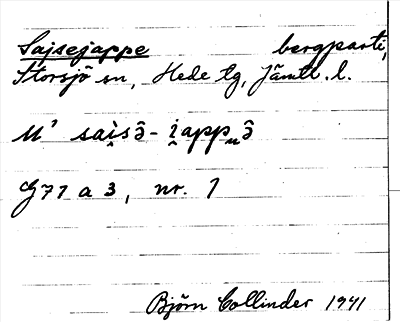 Sajsejappe bergparti,
Storsjö sn, Hede tg, Jämtl. l.
M³ sai̯sə̂ - i̯appᵤə̂
G 71 a 3, nr. 1
Björn Collinder 1941